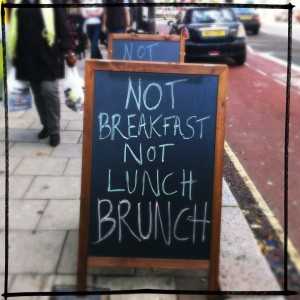 NOT
NOT
BREAKFAST
NOT
LUNCH
BRUNCH